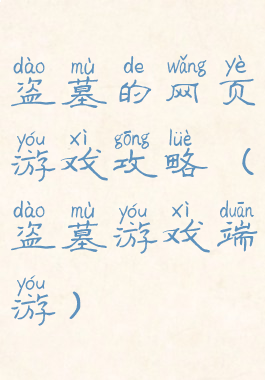 dào mù de wǎng yè
盗墓的网页
yóu xì gōng lüè
游戏攻略（
dào mù yóu xì duān
盗墓游戏端
yóu
游）